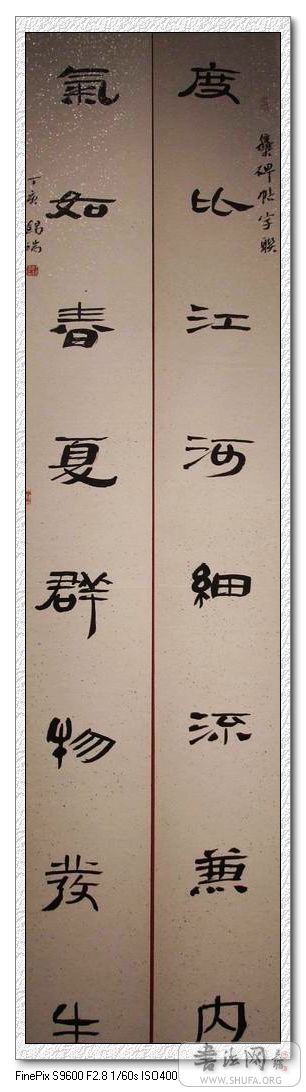 集碑帖字聯
度比江河細流兼内
氣如春夏群物發生
丁亥
FinePix S9600 F2.8 1/60s ISO400
书法网
WWW.SHUFA.ORG